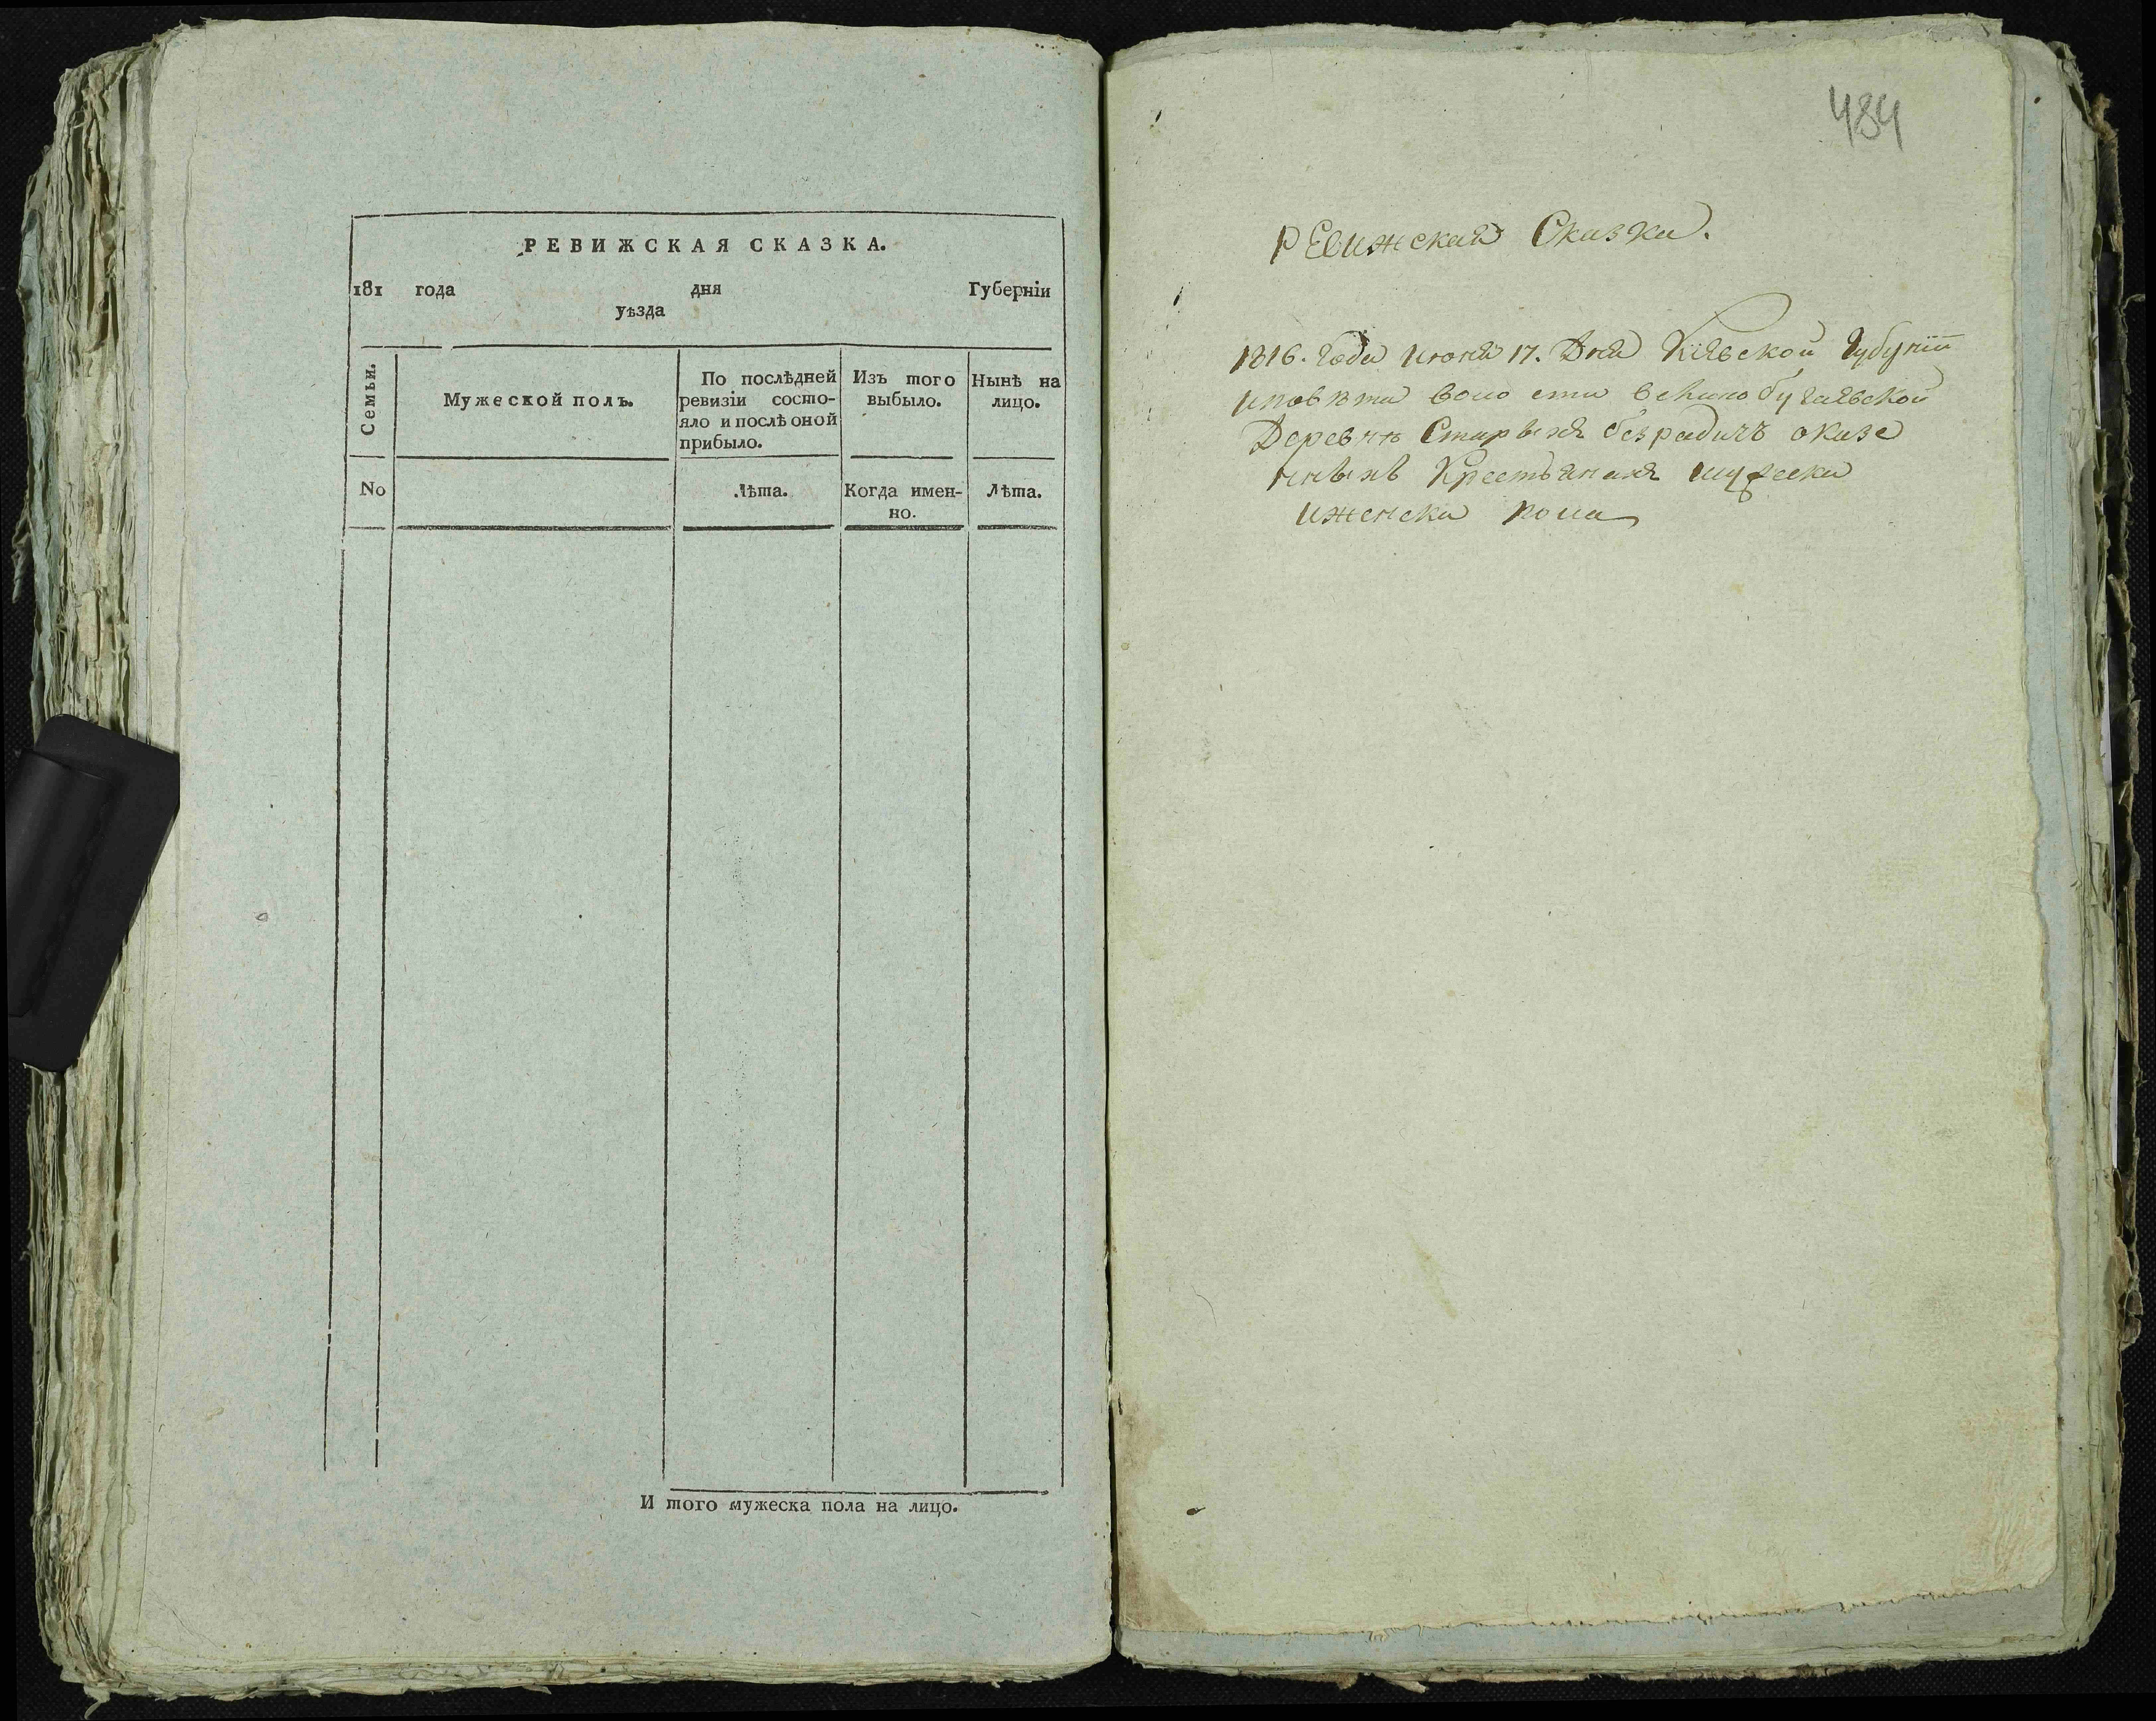 РЕВИЖСКАЯ СКАЗКА.
181 года дня Губерніи
уѣзда
Семьи.
Мужеской полъ.
По послѣдней ревизіи состо-
яло и послѣ оной
прибыло.
Изъ того
выбыло.
Нынѣ на
лицо.
No
Лѣта.
Когда имен-
но.
Лѣта.
И того мужеска пола на лицо.
484
Ревижская Сказка.
1816. года июня 17. Дня Кіевской Губернїи
иповѣта воло сти велико бугаевской
Деревни Старыхъ безрадичъ оказе
нныхъ Крестьянахъ мужеска
иженска пола